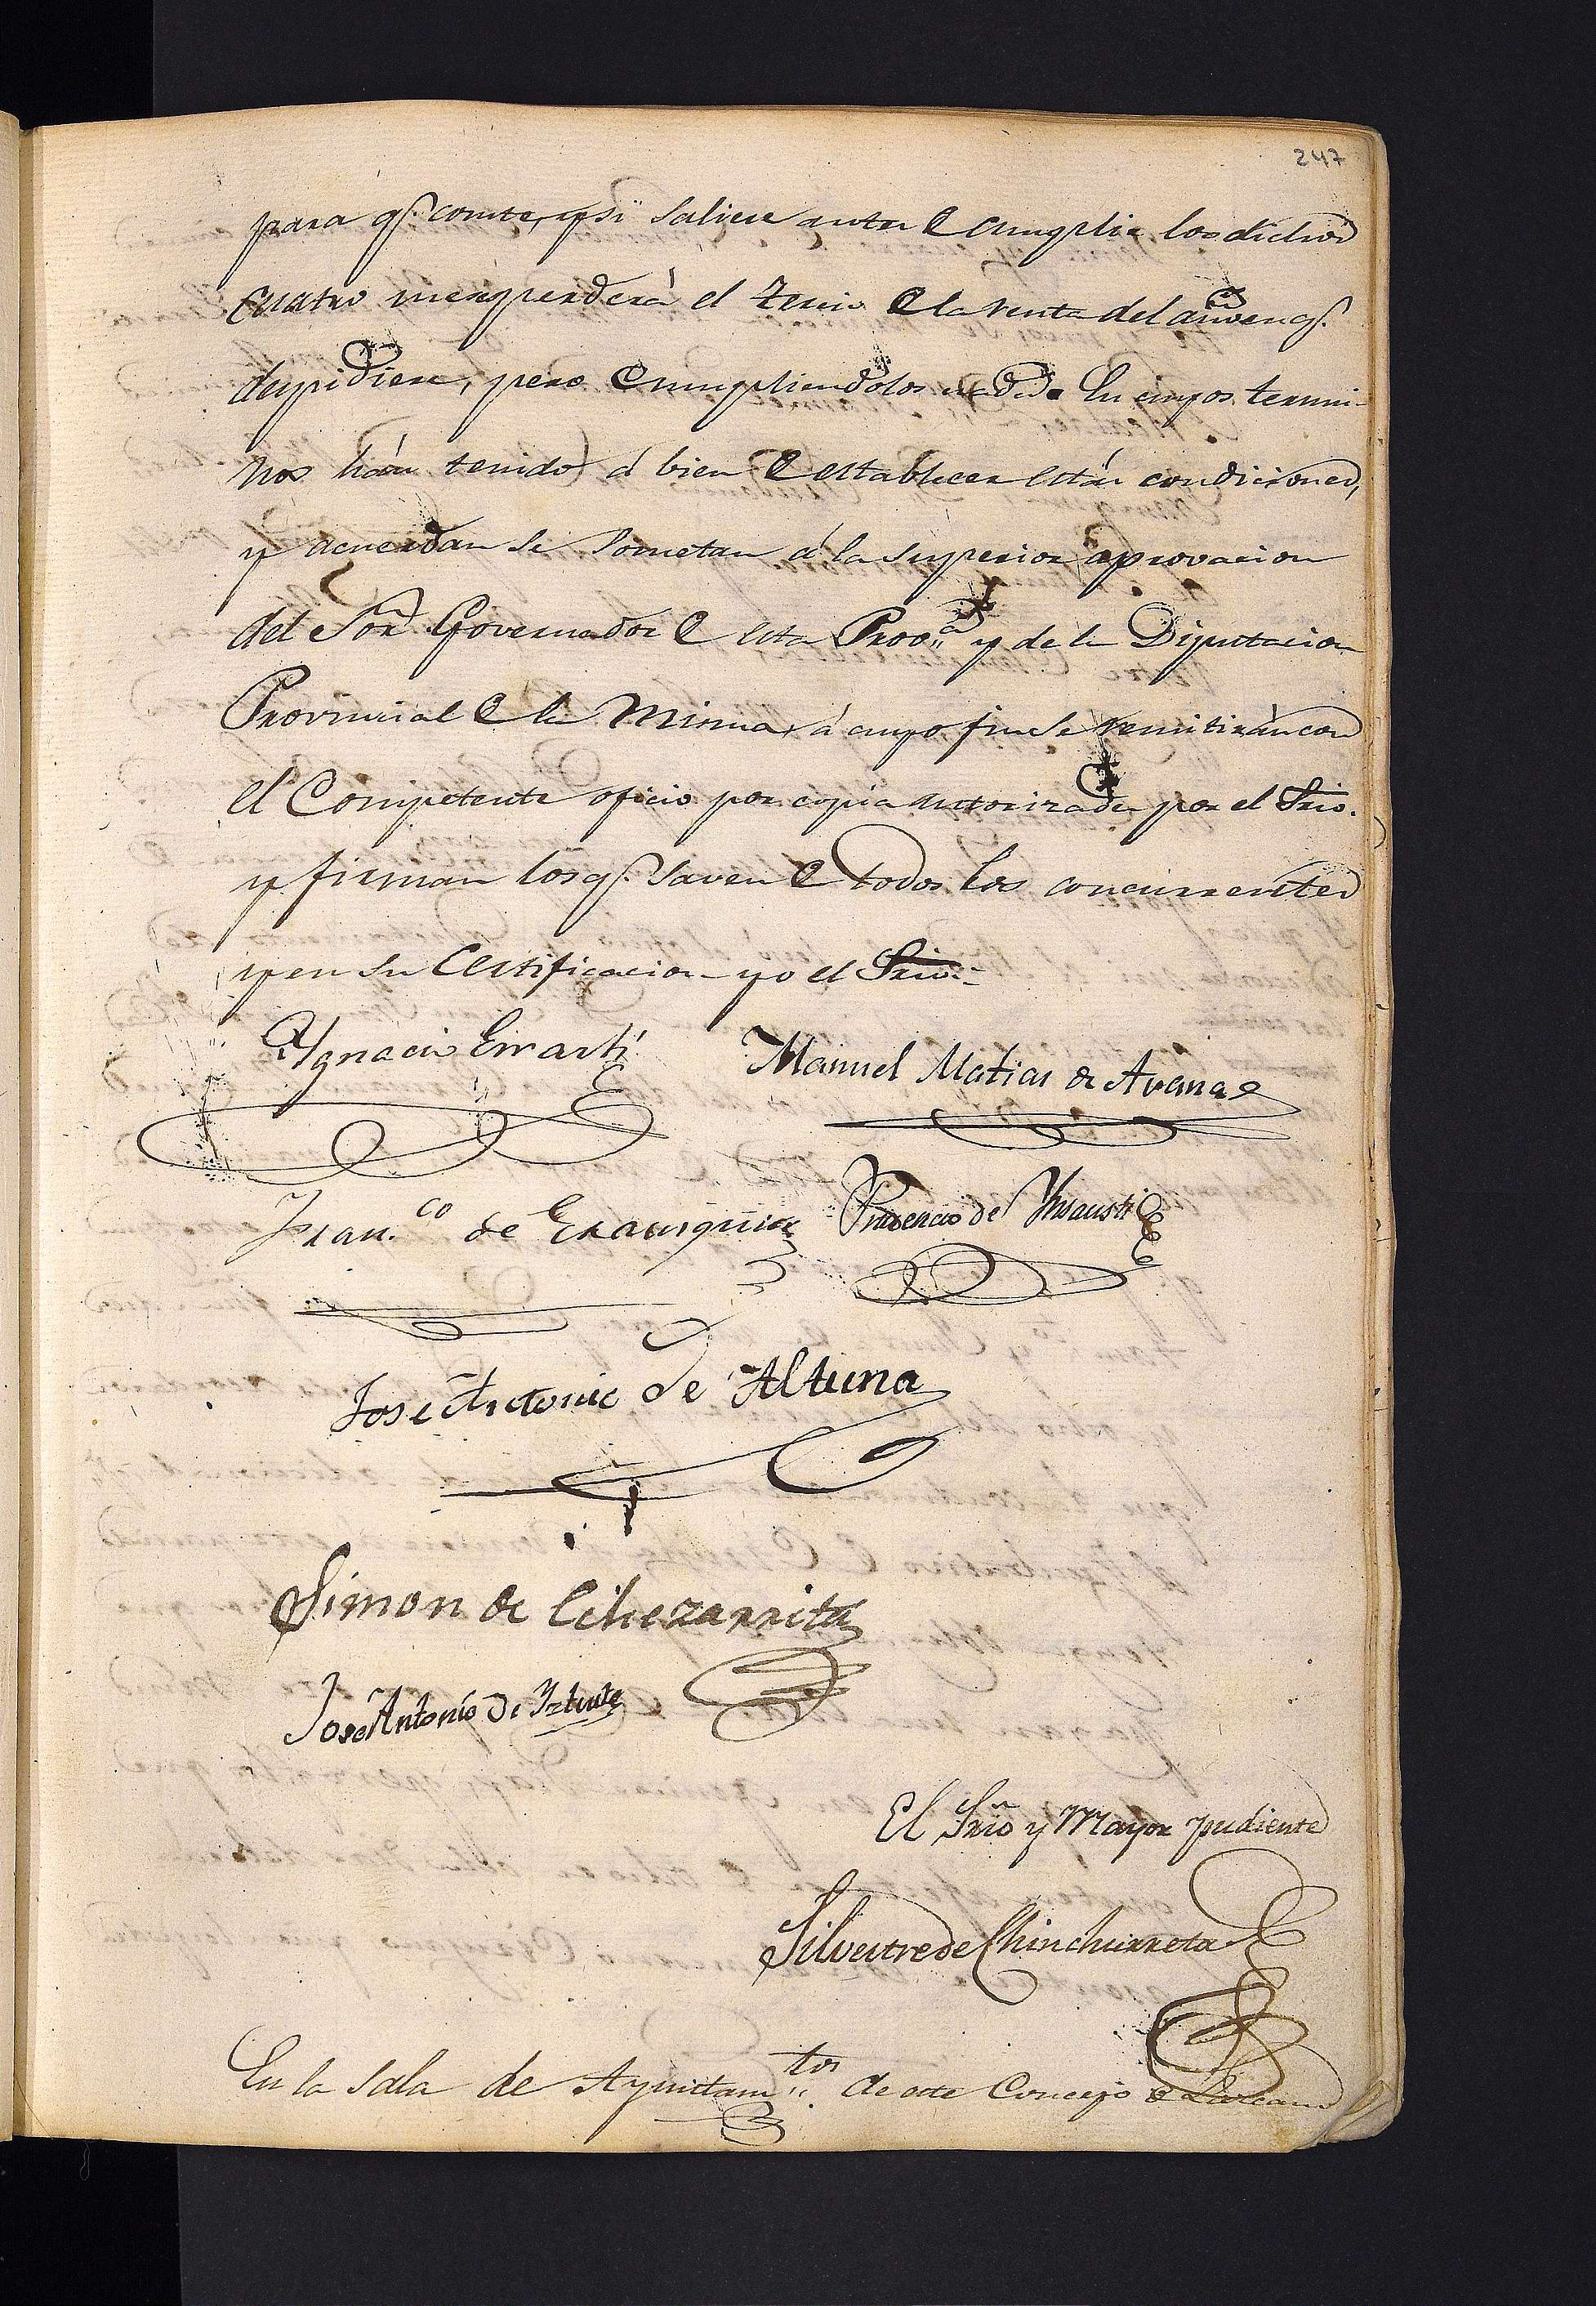 247
para q.e conste, y si saliere antes de cumplir los dichos
cuatro meses perderá el tercio de la renta del año en q.e
despidiere, pero cumpliendolos nada. En cuyos termi-
nos hán tenido á bien de establecer estás condiciones,
y acuerdan se sometan á la superior aprovacion
del Sor. Governador de esta Prov.a y de la Diputacion
Provincial de la Misma, á cuyo fin se remitirán con
el Competente oficio por copia autorizada por el Srio.
y firman los q.e saven de todos los concurrentes
y en su Certificacion yo el Srio.=
Ygnacio Errasti
Manuel Matias de Arana
Fran.co de Erausquin
Prudencio de Ynsausti
Jose Antonio de Altuna
Simon de Echezarrita
Jose Antonio de Yztueta
El Srio y Mayor pudiente
Silvestre de Chinchurreta
En la Sala de Ayuntam.tos de este Concejo de Lazcano